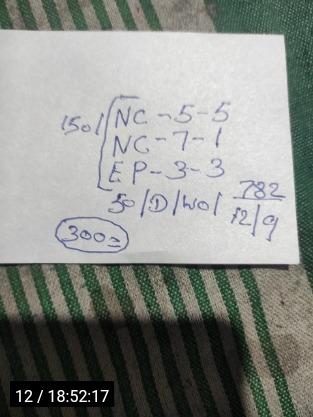 150/ NC-5-5
NC-7-1
EP-3-3
50/D/WO/ 782
12/9
300=
12 / 18:52:17